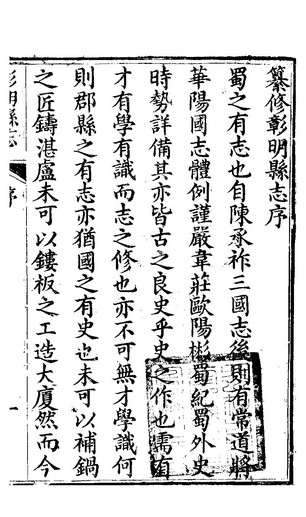 纂修彰明縣志序
蜀之有志也自陳承祚三國志後則有常道將
華陽國志體例謹嚴韋莊歐陽彬蜀紀蜀外史
時勢詳備其亦皆古之良史乎史之作也需有
才有學有識而志之修也亦不可無才學識何
則郡縣之有志亦猶國之有史也未可以補鍋
之匠鑄湛盧未可以鏤板之工造大廈然而今
彰明縣志
序
一